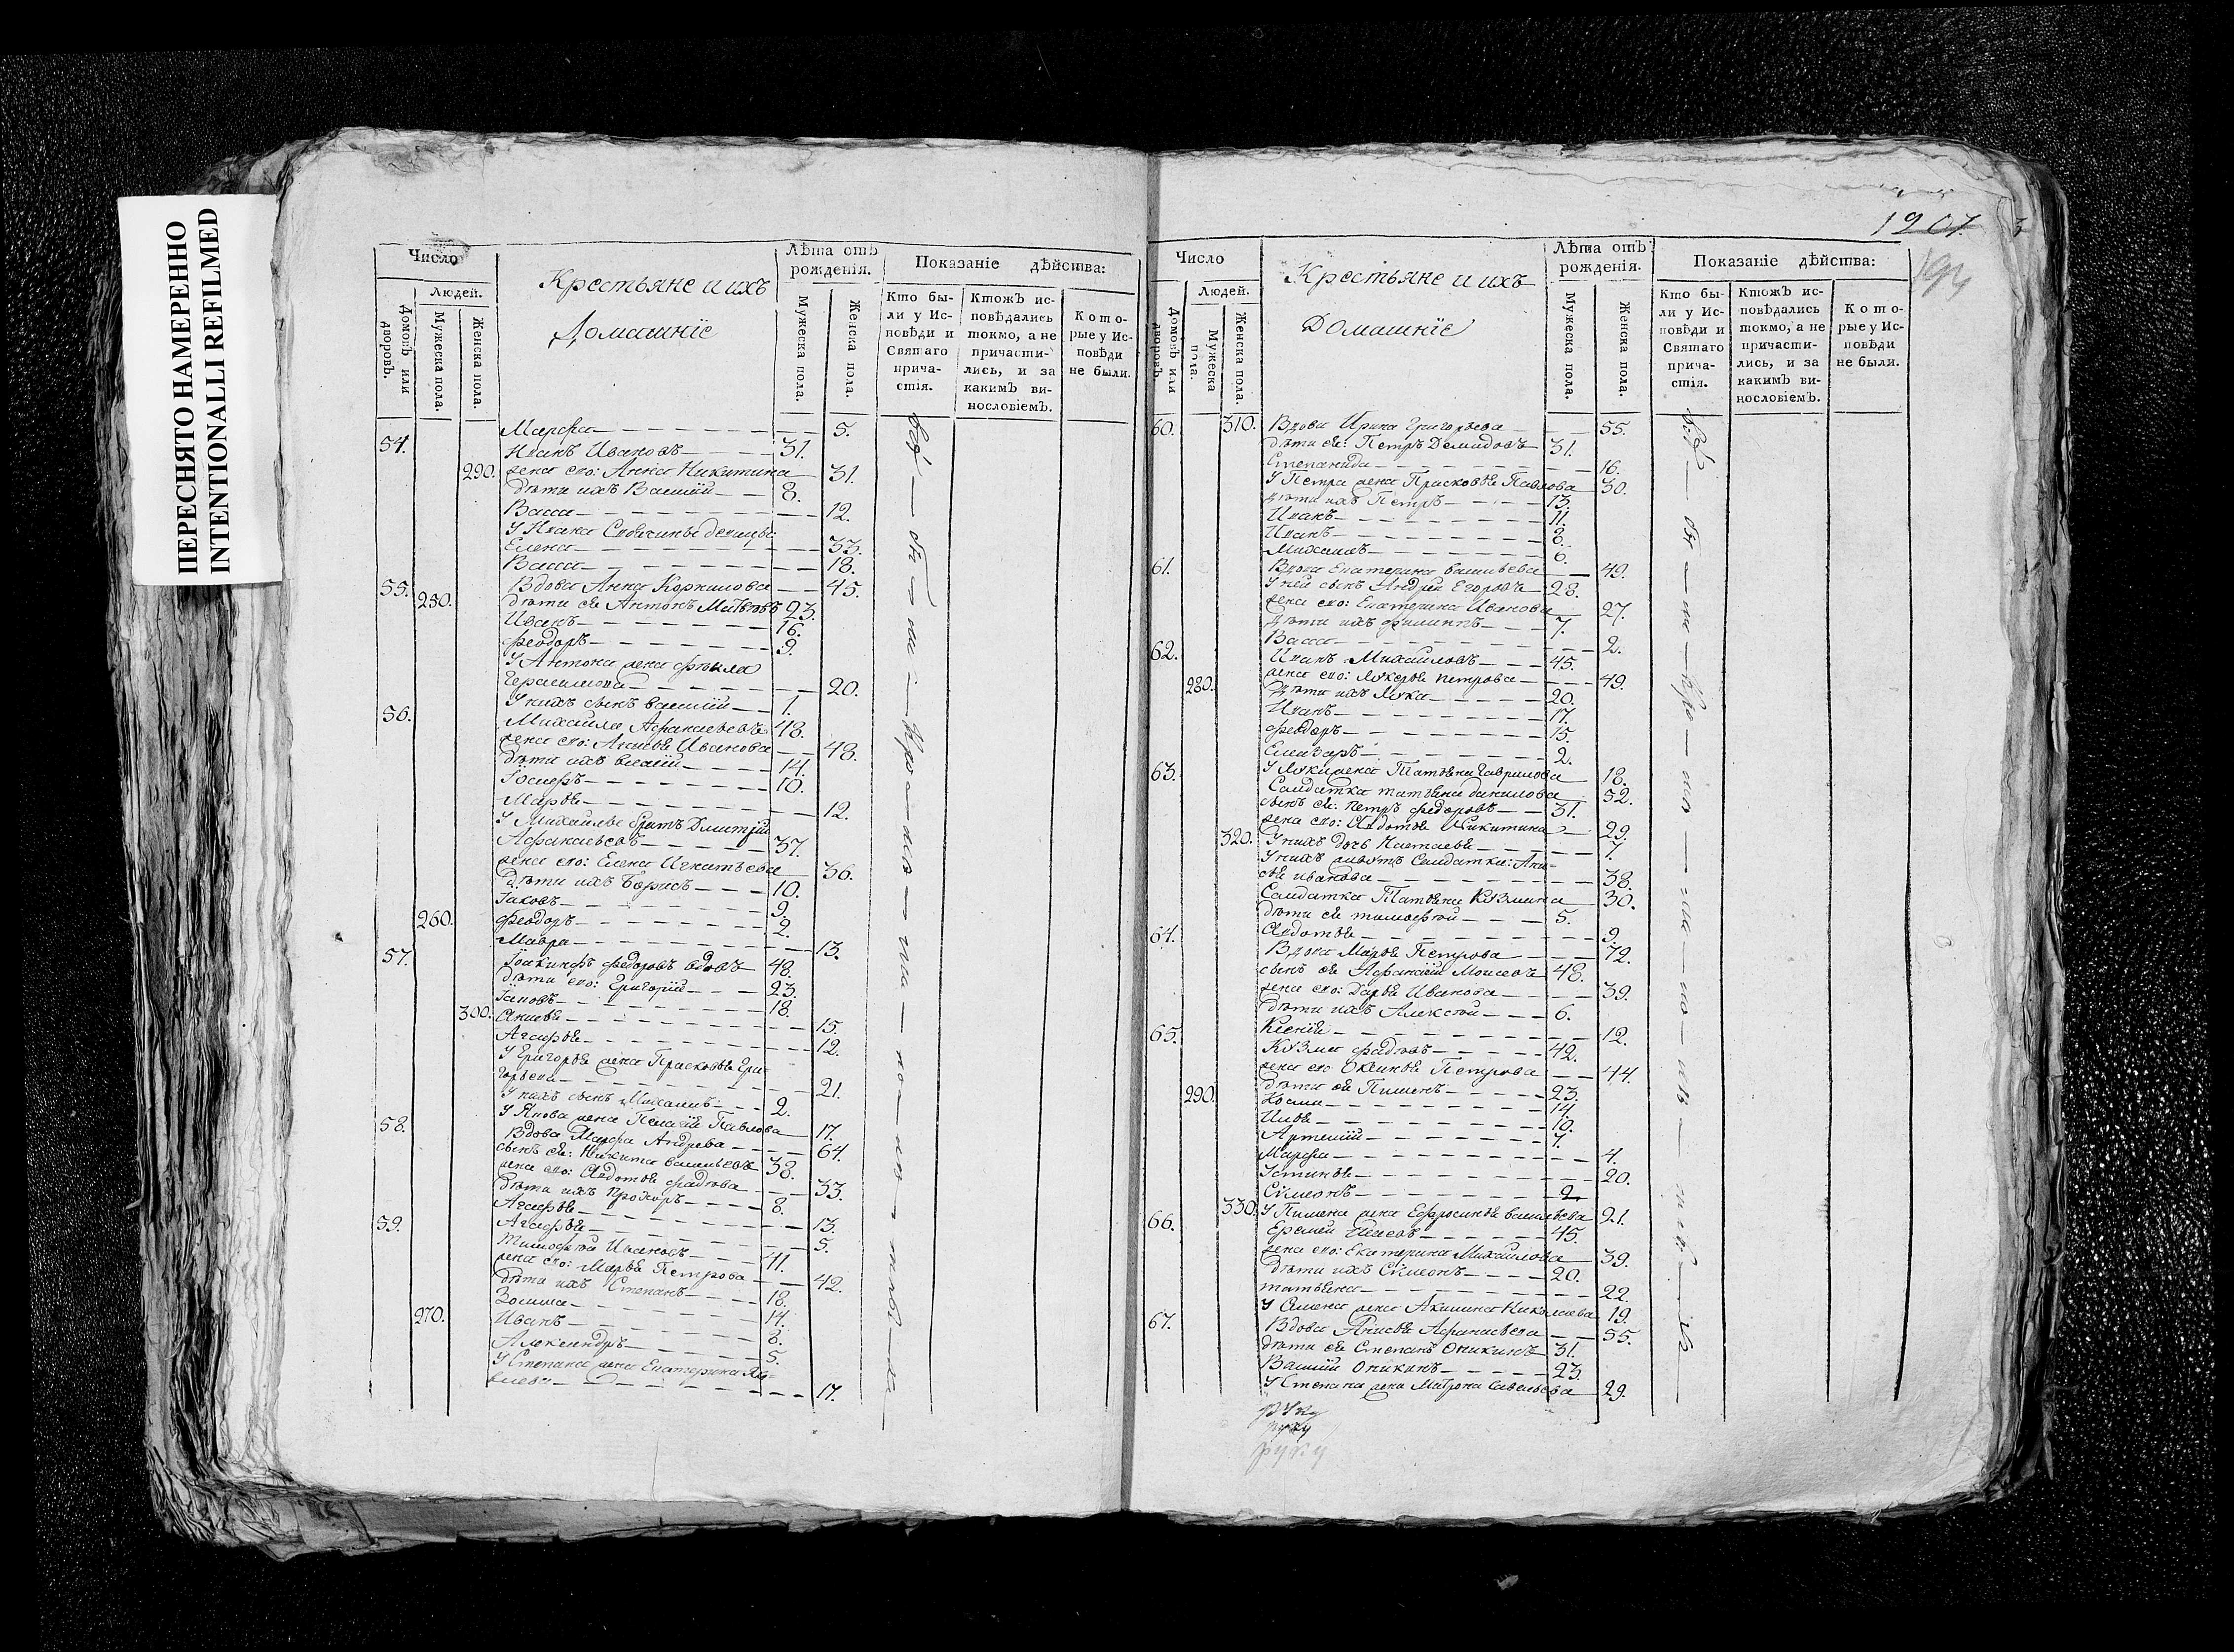 ПЕРЕСНЯТО НАМЕРЕННО
INTENTIONALLI REFILMED
Число
Людей.
Домовъ или дворовъ.
Мужеска пола.
Женска пола.
Крестьяне и ихъ
Домашніе
Лѣта отъ рожденія.
Мужеска пола.
Женска пола.
Показаніе дѣйства:
Кто были у Исповѣди и Святаго причастія.
Ктожъ исповѣдались токмо, а не причастились, и за какимъ винословіемъ.
Которые у Исповѣди не были.
Марфа 5.
54. Иванъ Ивановъ 31.
290. жена его: Анна Никитина 31.
дѣти ихъ Василій 8.
Васса 12.
У Ивана
Елена 33.
Васса 18.
55. Вдова Анна Корнилова 45.
250. дѣти ея Антонъ 23.
Иванъ 16.
Феодоръ 9.
У Антона жена Фекла
Герасимова 20.
У нихъ сынъ Василій 1.
56. Михайла Афанасьевъ 48.
жена его: Анисья Иванова 48.
дѣти ихъ 14.
Іосифъ 10.
Марья 12.
У Михайлы братъ Дмитрій
Афанасьевъ 37.
жена его: Елена Игнатьева 36.
Дѣти ихъ Борисъ 10.
Іаковъ 9.
260. Феодоръ 2.
Мавра 13.
57. Іоакинфъ Федоровъ вдовъ 48.
дѣти его: Григорій 23.
Іаковъ 18.
300. Анисья 15.
Агафья 12.
У Григорья жена Прасковья Гри-
горьева 21.
У нихъ сынъ Михаилъ 2.
У Якова жена Пелагія Павлова 17.
58. Вдова Марфа Андрева 64.
сынъ ея: Никита Васильевъ 38.
жена его: Авдотья Фадѣева 33.
дѣти ихъ Прохоръ 8.
Агафья 13.
59. Агафья 5.
Тимофей Ивановъ 41.
жена его: Марья Петрова 42.
дѣти ихъ Степанъ 18.
Зосима 14.
270. Иванъ 8.
Александръ 5.
У Степана жена Екатерина 17.
1207.
Число
Людей.
Домовъ или дворовъ.
Мужеска пола.
Женска пола.
Крестьяне и ихъ
Домашніе
Лѣта отъ рожденія.
Мужеска пола.
Женска пола.
Показаніе дѣйства:
Кто были у Исповѣди и Святаго причастія.
Ктожъ исповѣдались токмо, а не причастились, и за какимъ винословіемъ.
Которые у Исповѣди не были.
60. 310. Вдова Ирина Григорьева 55.
дѣти ея: Петръ Демидовъ 31.
Степанида 16.
У Петра жена Прасковья Павлова 30.
дѣти ихъ Петръ 13.
Иванъ 11.
Иванъ 8.
Михаилъ 6.
61. Вдова Екатерина Васильева 49.
У ней сынъ Андрей Егоровъ 28.
жена его: Екатерина Иванова 27.
дѣти ихъ Филиппъ 7.
Васса 2.
62. Иванъ Михайловъ 45.
280. жена его: Лукерья Петрова 49.
Дѣти ихъ Лука 20.
Иванъ 17.
Федоръ 15.
Елизаръ 2.
63. У Луки жена Татьяна Гаврилова 18.
Салдатка Татьяна Данилова 52.
сынъ ея: Петръ Федоровъ 31.
жена его: Авдотья Никитина 29.
320. У нихъ дочь Настасья 7.
У нихъ живутъ Салдатки: Ани-
сья Иванова 38.
Салдатка Татьяна Кузмина 30.
дѣти ея Тимофей 5.
64. Авдотья 9.
Вдова Марья Петрова 72.
сынъ ея Афанасій Моисеевъ 48.
жена его: Дарья Иванова 39.
Дѣти ихъ Алексѣй 6.
65. Ксенія 12.
Кузма Фадѣевъ 42.
жена его Оксинья Петрова 44.
дѣти ея Пименъ 23.
290. Косма 14.
Илья 10.
Артемій 7.
Марфа 4.
Устинья 20.
Сѵмеонъ 2
330. У Пимена жена Ефросинья Васильева 21.
66. Еремей 45.
жена его: Екатерина Михайлова 39.
Дѣти ихъ Сѵмеонъ 20.
Татьяна 22.
У Семена жена Акилина Николаева 19.
67. Вдова Анисья Афанасьева 55.
дѣти ея Степанъ Оникинъ 31.
Василій Оникинъ 23.
У Степана жена Матрона Савельева 29.
руку
руку
руку